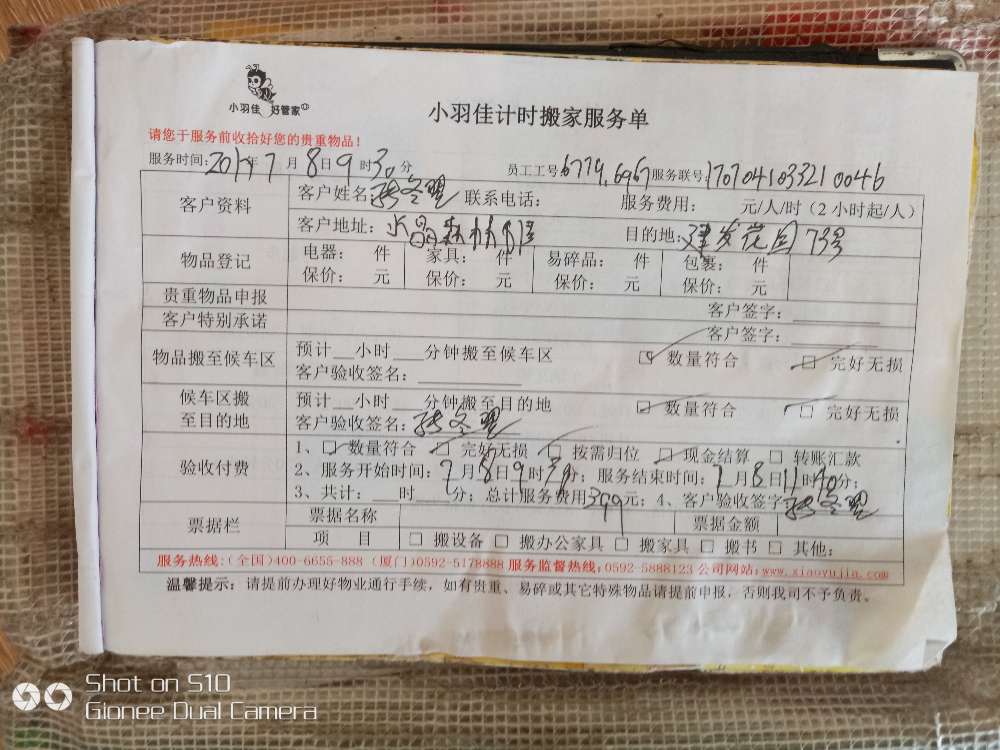 小羽佳 好管家
小羽佳计时搬家服务单
请您于服务前收拾好您的贵重物品！
服务时间:2017年7月8日9时30分 员工工号6779.6967服务联号1707041033210046
客户资料
客户姓名 联系电话： 服务费用： 元/人/时（2小时起/人）
客户地址：水晶森林 目的地:建发花园73号
物品登记
电器： 件 家具： 件 易碎品： 件 包裹： 件
保价： 元 保价： 元 保价： 元 保价： 元
贵重物品申报 客户签字：
客户特别承诺 客户签字：
物品搬至候车区
预计__小时___分钟搬至候车区 □ 数量符合 □ 完好无损
客户验收签名：
候车区搬至目的地
预计__小时___分钟搬至目的地 □ 数量符合 □ 完好无损
客户验收签名：
验收付费
1、□ 数量符合 □ 完好无损 □ 按需归位 □ 现金结算 □ 转账汇款
2、服务开始时间：7月8日9时30分；服务结束时间：7月8日11时40分；
3、共计：___时___分；总计服务费用399元；4、客户验收签字
票据栏
票据名称 票据金额
项 目 □ 搬设备 □ 搬办公家具 □ 搬家具 □ 搬书 □ 其他：
服务热线：(全国)400-6655-888 (厦门)0592-5178888 服务监督热线：0592-5888123 公司网站：www.xiaoyujia.com
温馨提示：请提前办理好物业通行手续，如有贵重、易碎或其它特殊物品请提前申报，否则我司不予负责。
Shot on S10
Gionee Dual Camera